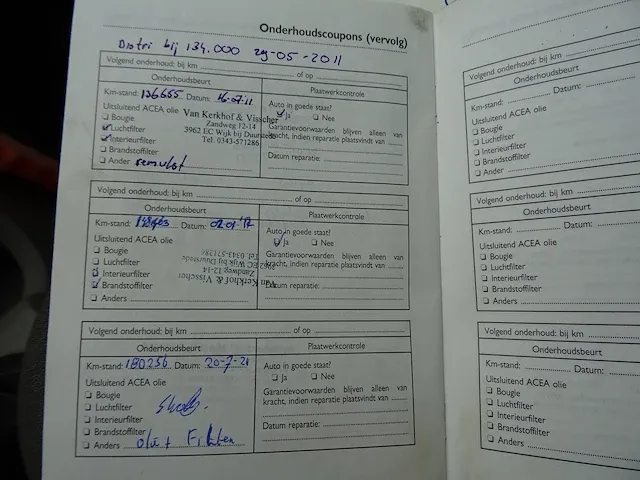 Onderhoudscoupons (vervolg)
Distri bij 134.000 29-05-2011
Volgend onderhoud: bij km of op
Onderhoudsbeurt Plaatwerkcontrole
Km-stand: 136655 Datum: 16-07-11 Auto in goede staat?
Uitsluitend ACEA olie Van Kerkhof & Visscher Ja Nee
Bougie Zandweg 12-14
Luchtfilter 3962 EC Wijk bij Duurstede Garantievoorwaarden blijven alleen van
Interieurfilter Tel. 0343-571286 kracht, indien reparatie plaatsvindt van
Brandstoffilter Datum reparatie:
Ander remvlst
Volgend onderhoud: bij km of op
Onderhoudsbeurt Plaatwerkcontrole
Km-stand: Datum: Auto in goede staat?
Uitsluitend ACEA olie Ja Nee
Bougie Tel. 0343-571286 Garantievoorwaarden blijven alleen van
Luchtfilter 3962 EC Wijk bij Duurstede kracht, indien reparatie plaatsvindt van
Interieurfilter Zandweg 12-14
Brandstoffilter Van Kerkhof & Visscher Datum reparatie:
Anders
Volgend onderhoud: bij km of op
Onderhoudsbeurt Plaatwerkcontrole
Km-stand: 180256 Datum: 20-7-21 Auto in goede staat?
Uitsluitend ACEA olie Ja Nee
Bougie Garantievoorwaarden blijven alleen van
Luchtfilter kracht, indien reparatie plaatsvindt van
Interieurfilter
Brandstoffilter Datum reparatie:
Anders olie + Filters
Volgend onderhoud: bij km
Onderhoudsbeurt
Km-stand: Datum:
Uitsluitend ACEA olie
Bougie
Luchtfilter
Interieurfilter
Brandstoffilter
Anders
Volgend onderhoud: bij km
Onderhoudsbeurt
Km-stand: Datum:
Uitsluitend ACEA olie
Bougie
Luchtfilter
Interieurfilter
Brandstoffilter
Anders
Volgend onderhoud: bij km
Onderhoudsbeurt
Km-stand: Datum:
Uitsluitend ACEA olie
Bougie
Luchtfilter
Interieurfilter
Brandstoffilter
Anders